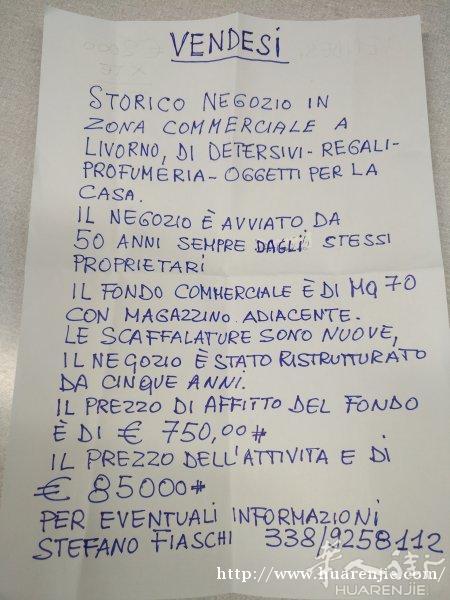 VENDESI
STORICO NEGOZIO IN
ZONA COMMERCIALE A
LIVORNO, DI DETERSIVI - REGALI -
PROFUMERIA - OGGETTI PER LA
CASA.
IL NEGOZIO È AVVIATO DA
50 ANNI SEMPRE DAGLI STESSI
PROPRIETARI
IL FONDO COMMERCIALE È DI MQ 70
CON MAGAZZINO ADIACENTE.
LE SCAFFALATURE SONO NUOVE,
IL NEGOZIO È STATO RISTRUTTURATO
DA CINQUE ANNI.
IL PREZZO DI AFFITTO DEL FONDO
È DI € 750,00#
IL PREZZO DELL'ATTIVITA E DI
€ 85000#
PER EVENTUALI INFORMAZIONI
STEFANO FIASCHI 338/9258112
华人街
HUARENJIE.COM
http://www.huarenjie.com/